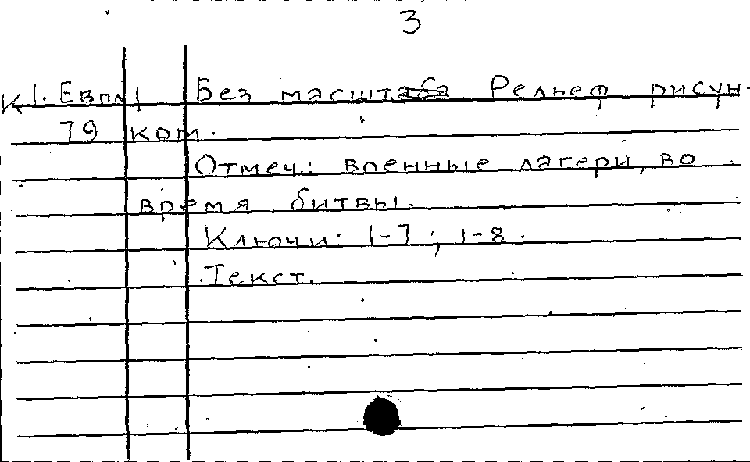 3
К 1. Евпл1 Без масштаба Рельеф рисун-
79 ком.
Отмеч.: военные лагери, во
время битвы.
Ключи: 1-7; 1-8.
Текст.